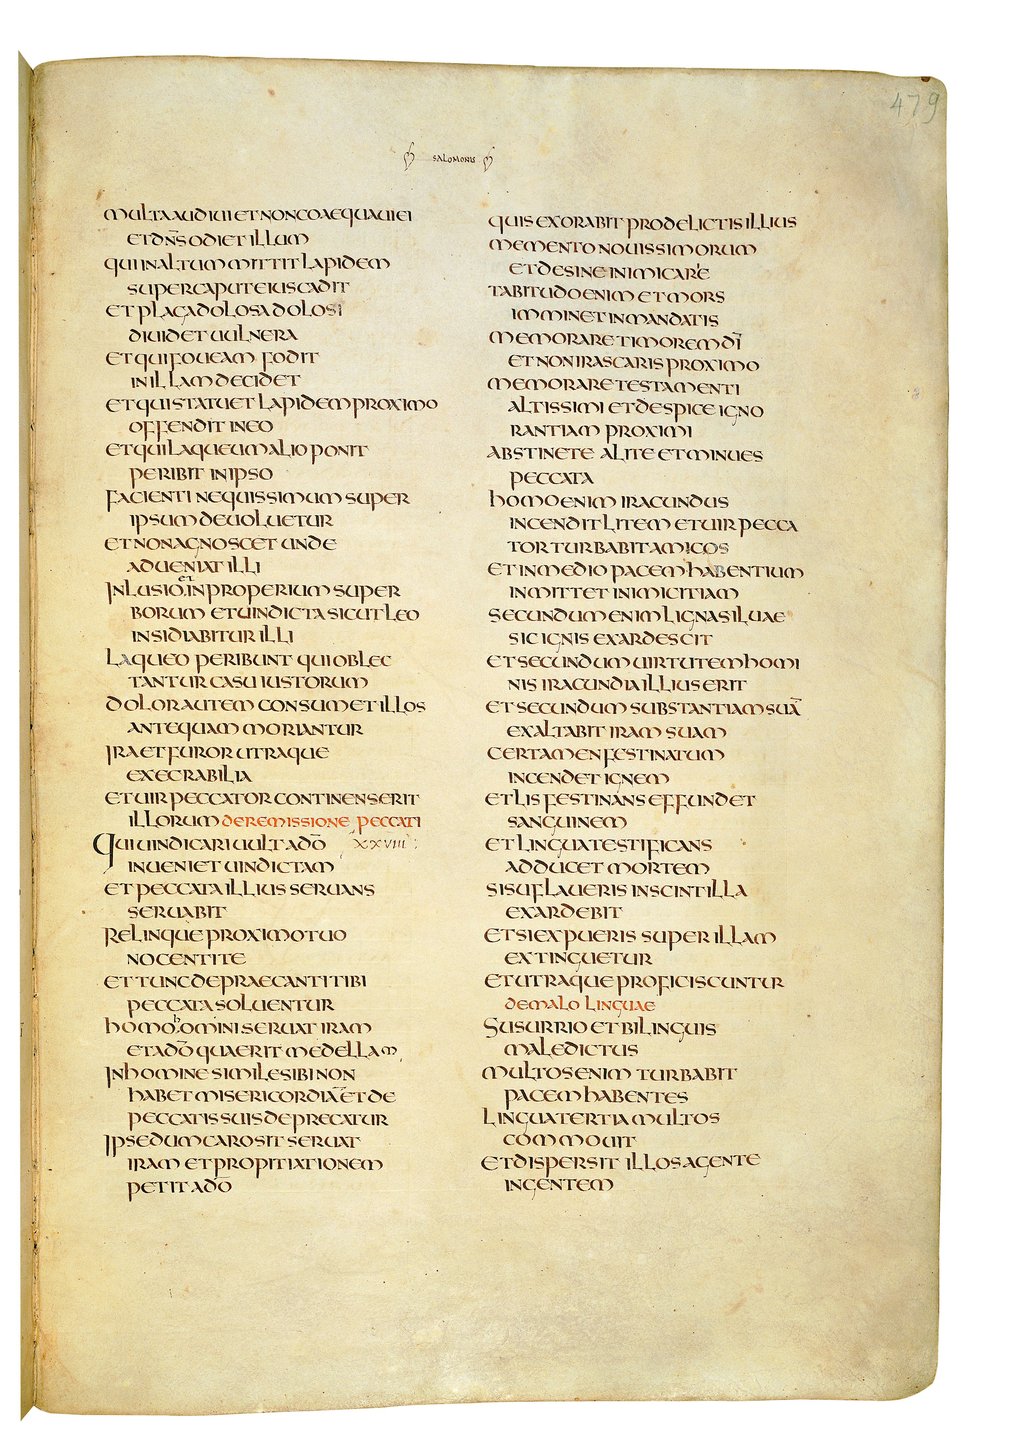 479
SALOMONIS
MULTA AUDIUI ET NON COAEQUAUI EI
ET DN̅S ODIET ILLUM
QUI IN ALTUM MITTIT LAPIDEM
SUPER CAPUT EIUS CADIT
ET PLAGA DOLOSA DOLOSI
DIUIDET UULNERA
ET QUI FOUEAM FODIT
IN ILLAM DECIDET
ET QUI STATUET LAPIDEM PROXIMO
OFFENDIT IN EO
ET QUI LAQUEUM ALIO PONIT
PERIBIT IN IPSO
FACIENTI NEQUISSIMUM SUPER
IPSUM DEUOLUETUR
ET NON AGNOSCET UNDE
ADUENIAT ILLI
INLUSIO ET INPROPERIUM SUPER
BORUM ET UINDICTA SICUT LEO
INSIDIABITUR ILLI
LAQUEO PERIBUNT QUI OBLEC
TANTUR CASU IUSTORUM
DOLOR AUTEM CONSUMET ILLOS
ANTEQUAM MORIANTUR
IRA ET FUROR UTRAQUE
EXECRABILIA
ET UIR PECCATOR CONTINENS ERIT
ILLORUM DE REMISSIONE PECCATI
QUI UINDICARI UULT A DO̅ XXVIII
INUENIET UINDICTAM
ET PECCATA ILLIUS SERUANS
SERUABIT
RELINQUE PROXIMO TUO
NOCENTI TE
ET TUNC DEPRAECANTI TIBI
PECCATA SOLUENTUR
HOMO HOMINI SERUAT IRAM
ET A DO̅ QUAERIT MEDELLAM
IN HOMINE SIMILE SIBI NON
HABET MISERICORDIA̅ ET DE
PECCATIS SUIS DEPRECATUR
IPSE DUM CARO SIT SERUAT
IRAM ET PROPITIATIONEM
PETIT A DO̅
QUIS EXORABIT PRO DELICTIS ILLIUS
MEMENTO NOUISSIMORUM
ET DESINE INIMICARE
TABITUDO ENIM ET MORS
IMMINET IN MANDATIS
MEMORARE TIMOREM DI̅
ET NON IRASCARIS PROXIMO
MEMORARE TESTAMENTI
ALTISSIMI ET DESPICE IGNO
RANTIAM PROXIMI
ABSTINE TE A LITE ET MINUES
PECCATA
HOMO ENIM IRACUNDUS
INCENDIT LITEM ET UIR PECCA
TOR TURBABIT AMICOS
ET IN MEDIO PACEM HABENTIUM
INMITTET INIMICITIAM
SECUNDUM ENIM LIGNA SILUAE
SIC IGNIS EXARDESCIT
ET SECUNDUM UIRTUTEM HOMI
NIS IRACUNDIA ILLIUS ERIT
ET SECUNDUM SUBSTANTIAM SUA̅
EXALTABIT IRAM SUAM
CERTAMEN FESTINATUM
INCENDET IGNEM
ET LIS FESTINANS EFFUNDET
SANGUINEM
ET LINGUA TESTIFICANS
ADDUCET MORTEM
SI SUFLAUERIS IN SCINTILLA
EXARDEBIT
ET SI EXPUERIS SUPER ILLAM
EXTINGUETUR
ET UTRAQUE PROFICISCUNTUR
DE MALO LINGUAE
SUSURRIO ET BILINGUIS
MALEDICTUS
MULTOS ENIM TURBABIT
PACEM HABENTES
LINGUA TERTIA MULTOS
COMMOUIT
ET DISPERSIT ILLOS A GENTE
IN GENTEM